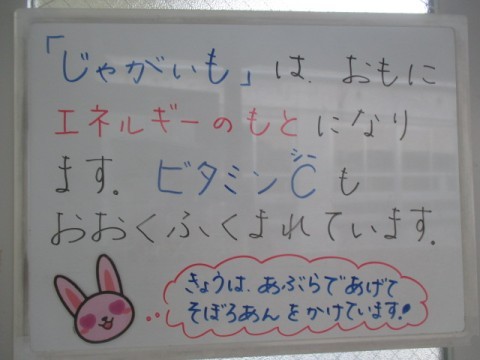 「じゃがいも」は、おもに
エネルギーのもとになり
ます。ビタミンCも
シー
おおくふくまれています。
きょうは、あぶらであげて
そぼろあんをかけています!